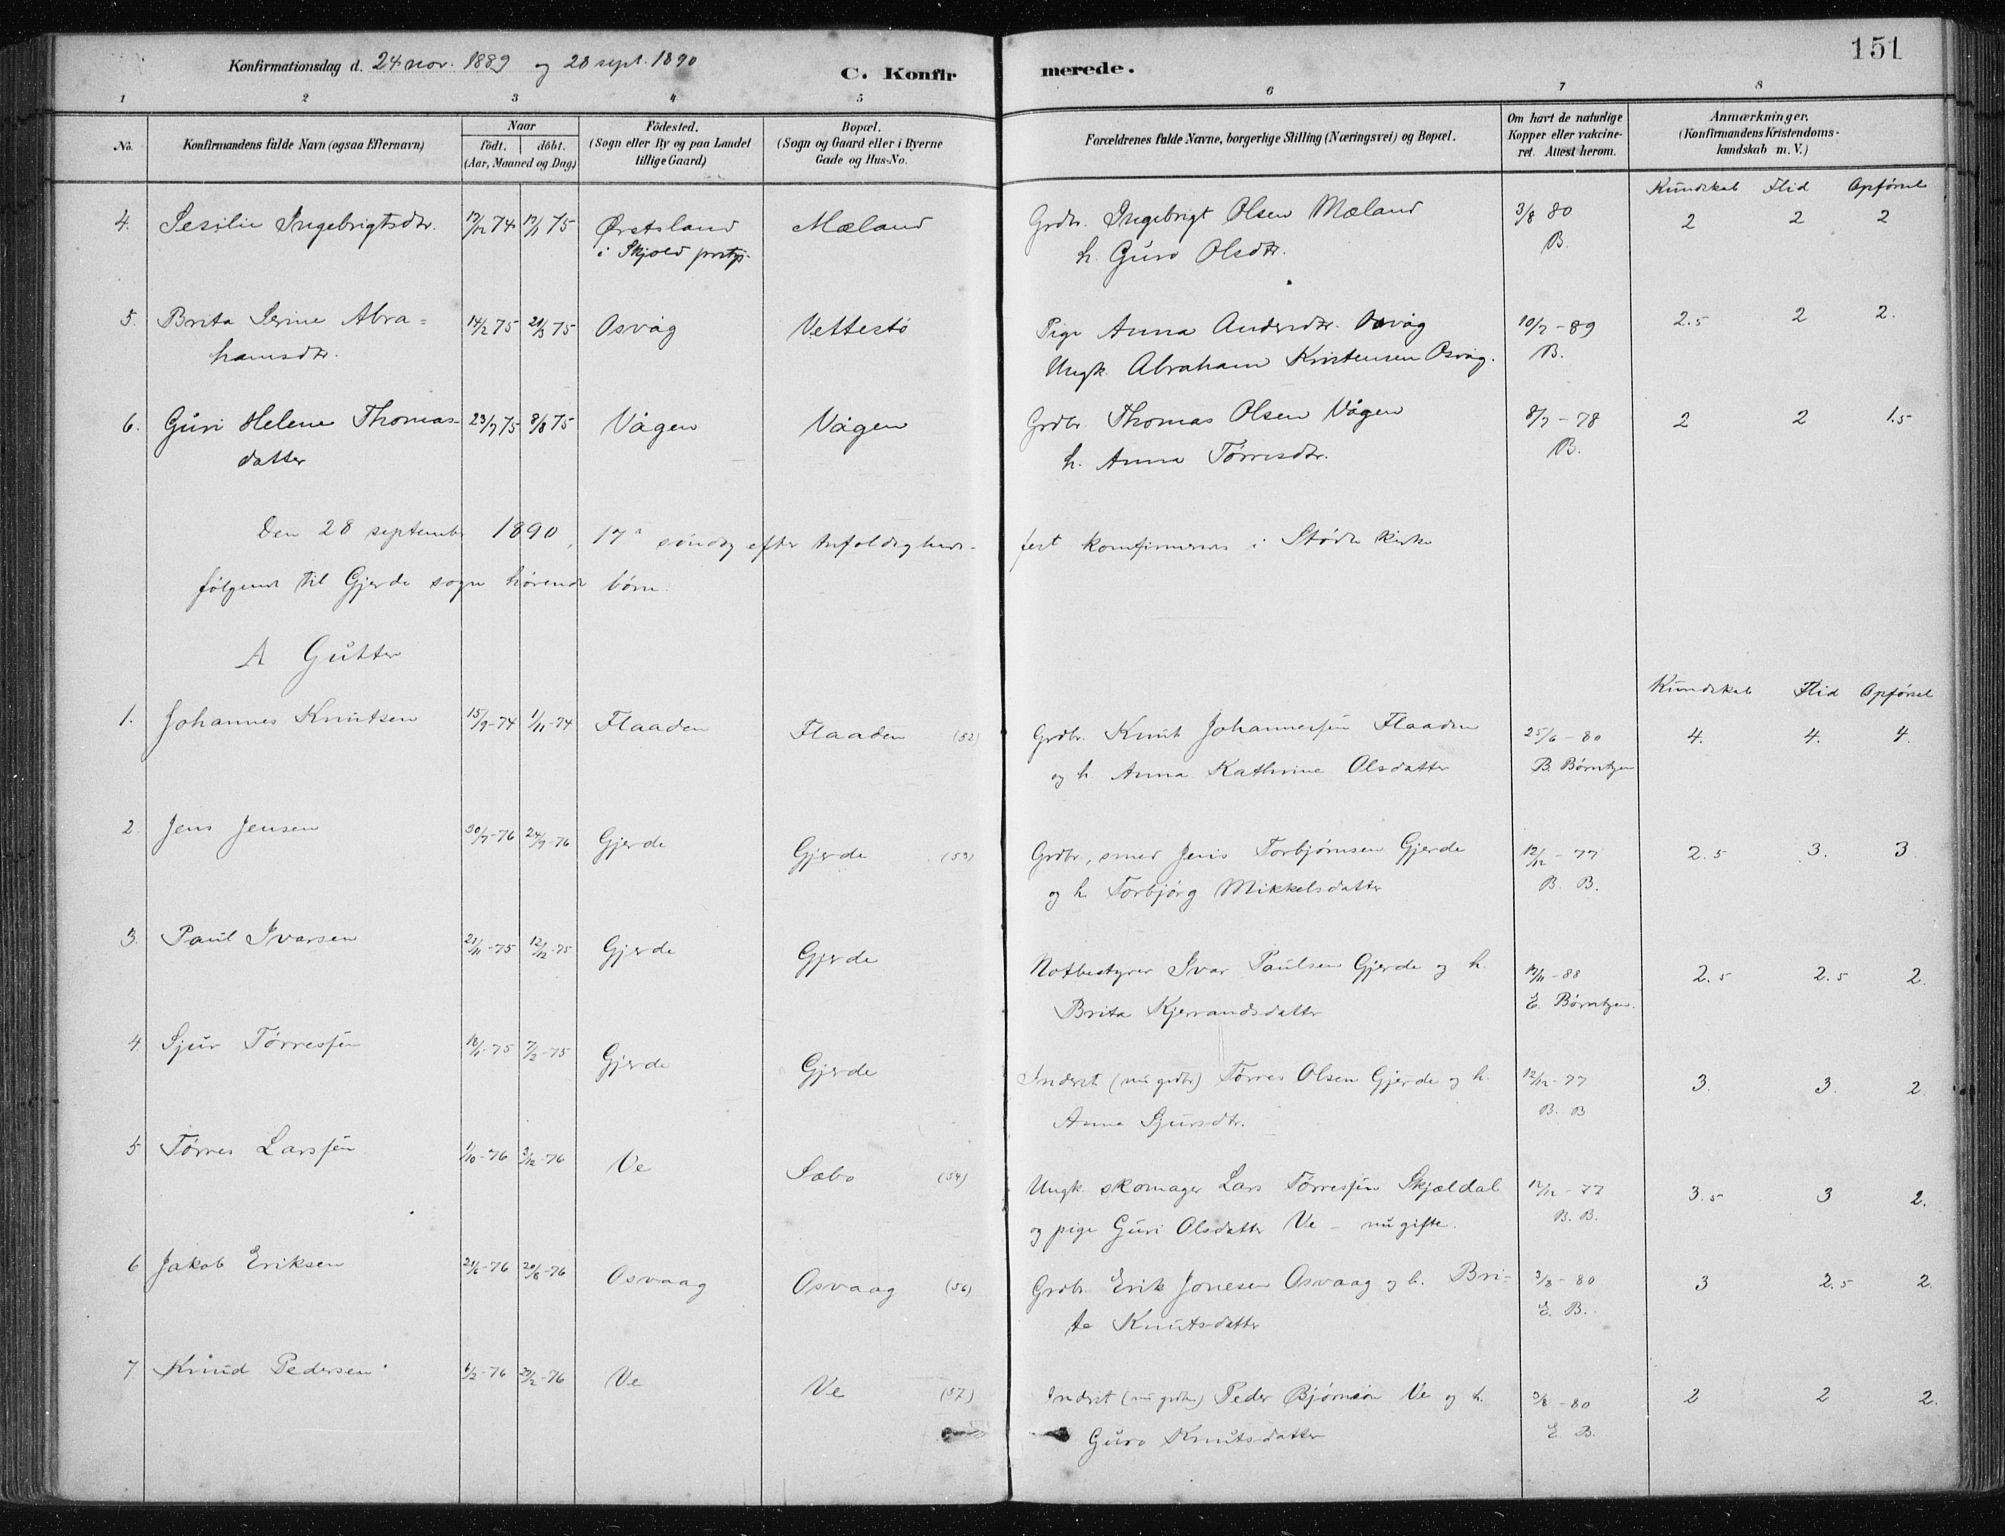 151
Konfirmationsdag d. 24 nov. 1889 og 28 sept. 1890
C. Konfirmerede.
1 2 3 4 5 6 7 8
No.
Konfirmandens fulde Navn (ogsaa Efternavn)
Naar
födt. döbt.
(Aar, Maaned og Dag)
Födested.
(Sogn eller By og paa Landet
tillige Gaard)
Bopæl.
(Sogn og Gaard eller i Byerne
Gade og Hus-No.
Forældrenes fulde Navne, borgerlige Stilling (Næringsvei) og Bopæl.
Om havt de naturlige
Kopper eller vakcine-
ret. Attest herom.
Anmærkninger,
(Konfirmandens Kristendoms-
kundskab m. V.)
Kundskab Flid Opførsel
4. Sesilie Ingebrigtsdtr. 17/12 74 17/1 75 Ørstsland Mæland Grdbr. Ingebrigt Olsen Mæland 3/8 80 2 2 2
i Skjold prstgj. h. Guro Olsdtr. B.
5. Brita Serine Abra= 14/2 75 21/3 75 Osvåg Vettestø Pige Anna Andersdtr. Osvåg 10/7 - 89 2.5 2 2.
hamsdtr. Ungk. Abraham Kristensen Osvåg. B.
6. Guri Helene Thomas- 23/7 75 8/8 75 Vågen Vågen Grdbr. Thomas Olsen Vågen 8/7 - 78 2 2 1.5
datter h. Anna Tørresdtr. B.
Den 28 september 1890, 17de søndag efter trefoldigheds-
fest konfirmeres i Støde kirke
følgende til Gjerde sogn hørende børn:
A Gutter
Kundskab Flid Opførsel
1. Johannes Knutsen 15/9-74 1/11-74 Flaaden Flaaden (52) Grdbr. Knut Johannessen Flaaden 25/6 - 80 4. 4. 4.
og h. Anna Kathrine Olsdatter B. Børntzen
2. Jens Jensen 30/7-76 24/9-76 Gjerde Gjerde (53) Grdbr., smed Jens Torbjørnsen Gjerde 12/12 - 77 2.5 3. 3
og h. Torbjørg Mikkelsdatter B. B.
3. Paul Ivarsen 21/11-75 12/12-75 Gjerde Gjerde Notbestyrer Ivar Paulsen Gjerde og h. 17/11 - 88 2.5 2.5 2.
Brita Kjerrandsdatter E. Børntzen.
4. Sjur Tørressen 18/1-75 7/2-75 Gjerde Gjerde Inderst (nu grdbr) Tørres Olsen Gjerde og h. 12/12 - 77 3. 3. 2.
Anna Sjursdtr. B. B
5 Tørres Larssen 1/10-76 3/12-76 Ve Sæbo (54) Ungk. skomager Lars Tørressen Skjældal 12/12 - 77 3.5 3 2.
og pige Guri Olsdatter Ve - nu gifte. B. B.
6 Jakob Eriksen 21/6-76 20/8-76 Osvaag Osvaag (56) Grdbr. Erik Jonesen Osvaag og h. Bri- 3/8 - 80 3 2.5 2.
ta Knutsdatter E. B.
7 Knud Pedersen 6/2-76 27/2-76 Ve Ve (57) Inderst (nu grdbr.) Peder Bjørnsøn Ve og h. 3/8 - 80 2 2 2.
Guro Knutsdatter E. B.